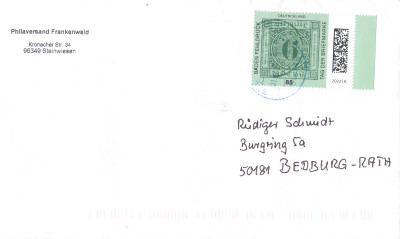 Philaversand Frankenwald
Kronacher Str. 34
96349 Steinwiesen
DEUTSCHLAND
BADEN FEHLDRUCK
6
TAG DER BRIEFMARKE
85
Rüdiger Schmidt
Burgring 5a
50181 BEDBURG-RATH